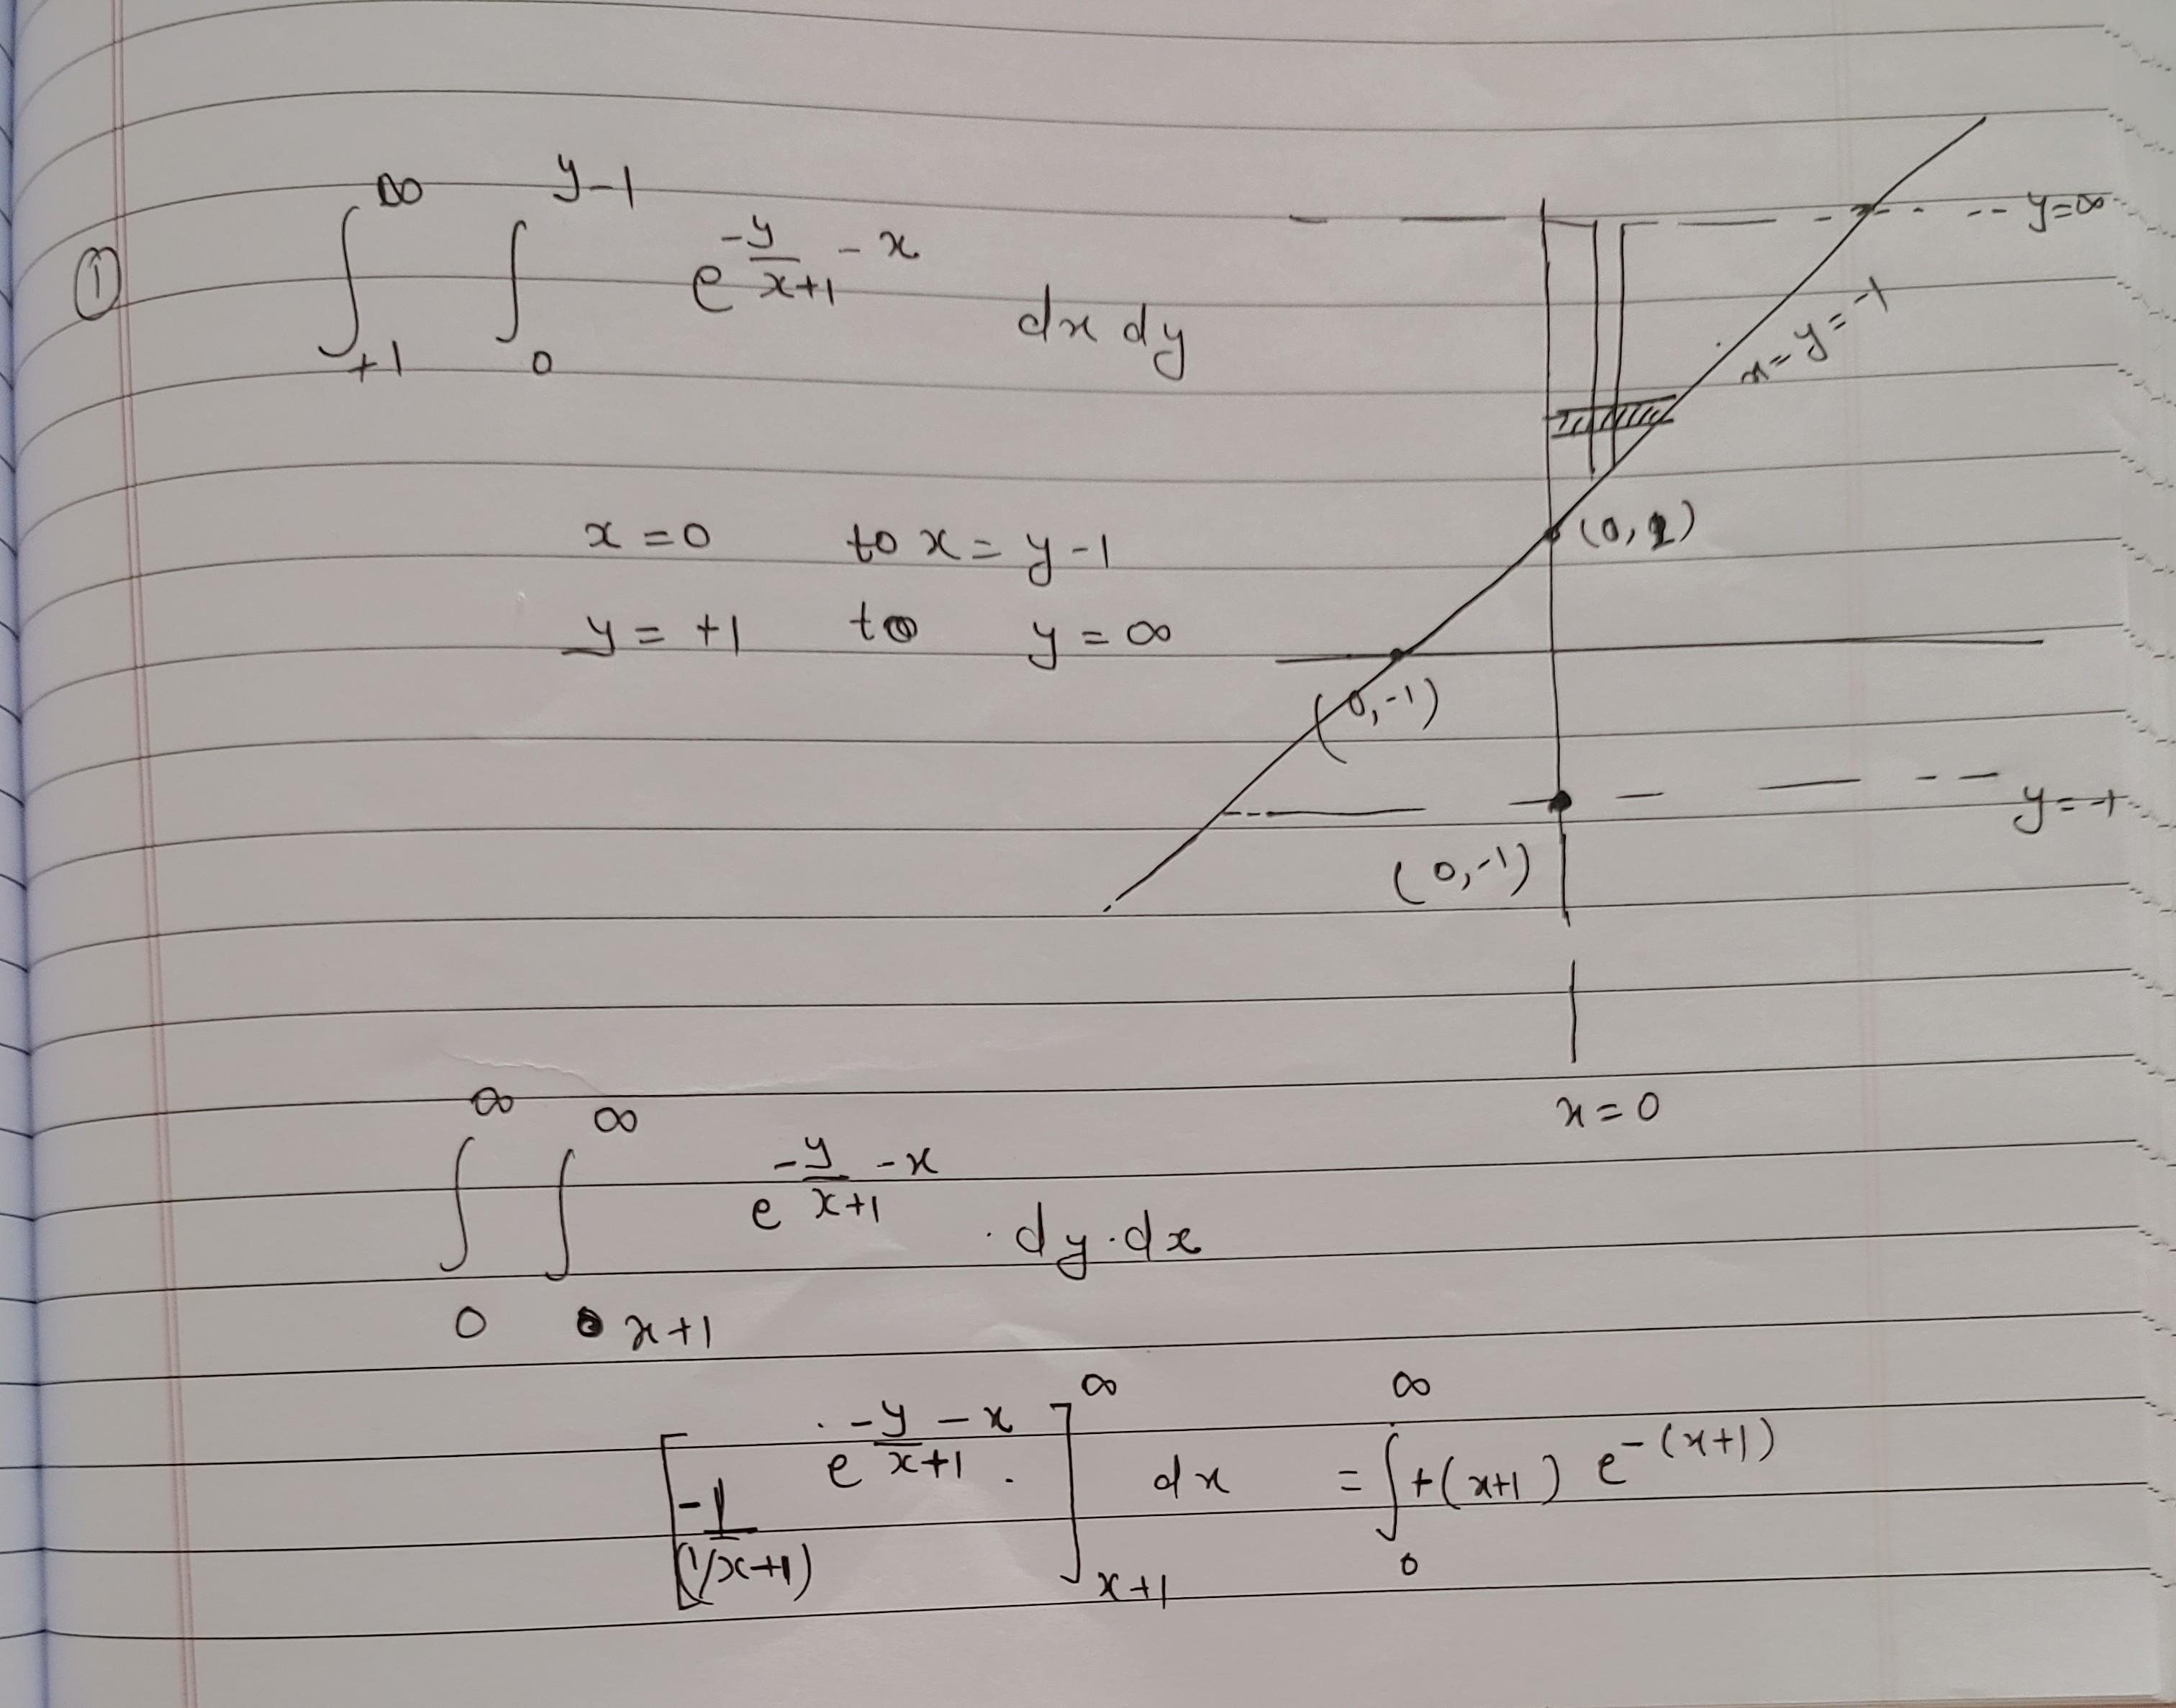 ① ∫_{+1}^{∞} ∫_{0}^{y-1} e^{-y/(x+1) - x} dx dy
y=∞
x=y=-1
x=0 to x=y-1
(0,1)
y=+1 to y=∞
(0,-1)
y=-1
(0,-1)
x=0
∫_{0}^{∞} ∫_{x+1}^{∞} e^{-y/(x+1) - x} . dy.dx
[-1/(1/x+1) e^{-y/(x+1) - x} .]_{x+1}^{∞} dx = ∫_{0}^{∞} +(x+1) e^{-(x+1)}